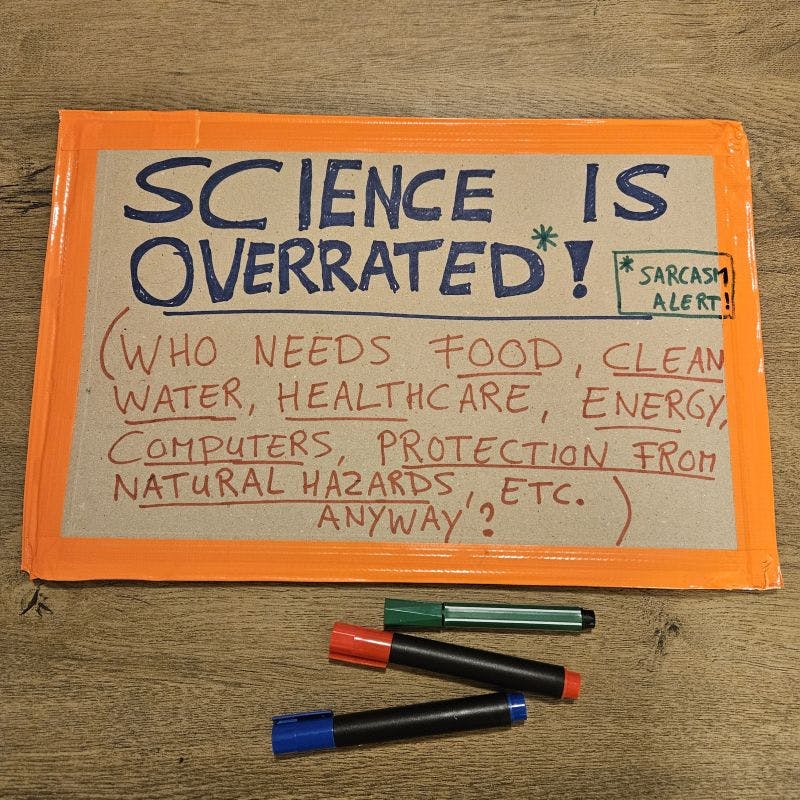 SCIENCE IS
OVERRATED*!
* SARCASM
ALERT!
(WHO NEEDS FOOD, CLEAN
WATER, HEALTHCARE, ENERGY,
COMPUTERS, PROTECTION FROM
NATURAL HAZARDS, ETC.
ANYWAY?)